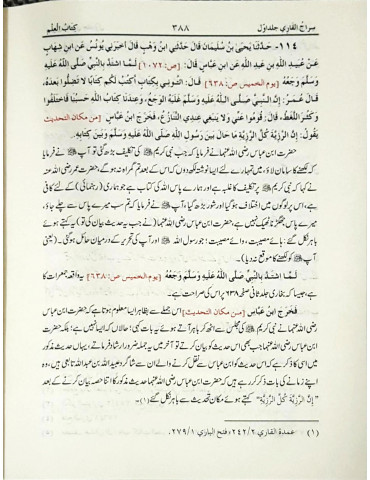 سراج القاري جلد اول ٣٨٨ كتابُ العِلْم
١١٤- حَدَّثَنَا يَحْيَى بْنُ سُلَيْمَانَ قَالَ حَدَّثَنِي ابْنُ وَهْبٍ قَالَ أَخْبَرَنِي يُونُسُ عَنِ ابْنِ شِهَابٍ
عَنْ عُبَيْدِ اللَّهِ بْنِ عَبْدِ اللَّهِ عَنِ ابْنِ عَبَّاسٍ قَالَ: [ص:١٠٧٢] لَمَّا اشْتَدَّ بِالنَّبِيِّ صَلَّى اللَّهُ عَلَيْهِ
وَسَلَّمَ وَجَعُهُ [يوم الخميس ص:٦٣٨] قَالَ: ائْتُونِي بِكِتَابٍ أَكْتُبْ لَكُمْ كِتَابًا لَا تَضِلُّوا بَعْدَهُ،
قَالَ عُمَرُ: إِنَّ النَّبِيَّ صَلَّى اللَّهُ عَلَيْهِ وَسَلَّمَ غَلَبَهُ الْوَجَعُ، وَعِنْدَنَا كِتَابُ اللَّهِ حَسْبُنَا فَاخْتَلَفُوا
وَكَثُرَ اللَّغَطُ، قَالَ: قُومُوا عَنِّي وَلَا يَنْبَغِي عِنْدِي التَّنَازُعُ، فَخَرَجَ ابْنُ عَبَّاسٍ [من مكان التحديث]
يَقُولُ: إِنَّ الرَّزِيَّةَ كُلَّ الرَّزِيَّةِ مَا حَالَ بَيْنَ رَسُولِ اللَّهِ صَلَّى اللَّهُ عَلَيْهِ وَسَلَّمَ وَبَيْنَ كِتَابِهِ.
حضرت ابن عباس رضی اللہ عنہما نے فرمایا کہ جب نبی کریم ﷺ کی تکلیف بڑھ گئی تو آپ ﷺ نے فرمایا
کہ لکھنے کا سامان لاؤ، میں تمہارے لئے ایسا نوشتہ لکھ دوں کہ اس کے بعد تم گمراہ نہ ہو گے حضرت عمر رضی اللہ عنہ
نے کہا کہ نبی کریم ﷺ پر تکلیف کا غلبہ ہے اور ہمارے پاس اللہ کی کتاب ہے جو ہماری (رہنمائی) کے لئے کافی
ہے، اس پر لوگوں میں اختلاف ہو گیا اور شور بڑھ گیا، آپ ﷺ نے فرمایا کہ تم سب میرے پاس سے چلے جاؤ،
میرے پاس جھگڑنا ٹھیک نہیں ہے، حضرت ابن عباس رضی اللہ عنہما (نے جب یہ حدیث بیان کی تو) یہ کہتے ہوئے
باہر نکل گئے: ہائے مصیبت، وائے مصیبت: جو رسول اللہ ﷺ اور آپ کی تحریر کے درمیان حائل ہو گئی۔ (یعنی
آپ ﷺ کو لکھنے کا موقع نہ دیا)
لَمَّا اشْتَدَّ بِالنَّبِيِّ صَلَّى اللَّهُ عَلَيْهِ وَسَلَّمَ وَجَعُهُ [يوم الخميس ص:٦٣٨] یہ واقعہ جمعرات کا
ہے، جیسا کہ بخاری جلد ثانی صفحہ ٦٣٨ پر اس کی صراحت ہے۔
فَخَرَجَ ابْنُ عَبَّاسٍ [من مكان التحديث] اس جملے سے بظاہر ایسا معلوم ہوتا ہے کہ حضرت ابن عباس
رضی اللہ عنہما نبی کریم ﷺ کی مجلس سے اٹھ کر باہر آتے ہوئے یہ بات کہی؛ حالاں کہ ایسا نہیں ہے؛ بلکہ حضرت
ابن عباس رضی اللہ عنہما جب بھی اس حدیث کو بیان کرتے تو آخر میں یہ جملہ ضرور ارشاد فرماتے، یہاں حدیث مذکور
میں اسی کا ذکر ہے کہ اس حدیث کو ابن عباس رضی اللہ عنہما سے نقل کرنے والے ان سے شاگرد عبید اللہ بن عبد اللہ تابعی ہیں، وہ
اپنے زمانے کی بات ذکر کر رہے ہیں کہ حضرت ابن عباس رضی اللہ عنہما حدیث مذکور کا اتنا حصہ بیان کرنے کے بعد
"إِنَّ الرَّزِيَّةَ كُلَّ الرَّزِيَّةِ" کہتے ہوئے مکانِ تحدیث سے باہر نکل گئے (۱)۔
(١) عمدة القاري: ٢٤٢/٢، فتح الباري: ٢٧٩/١.